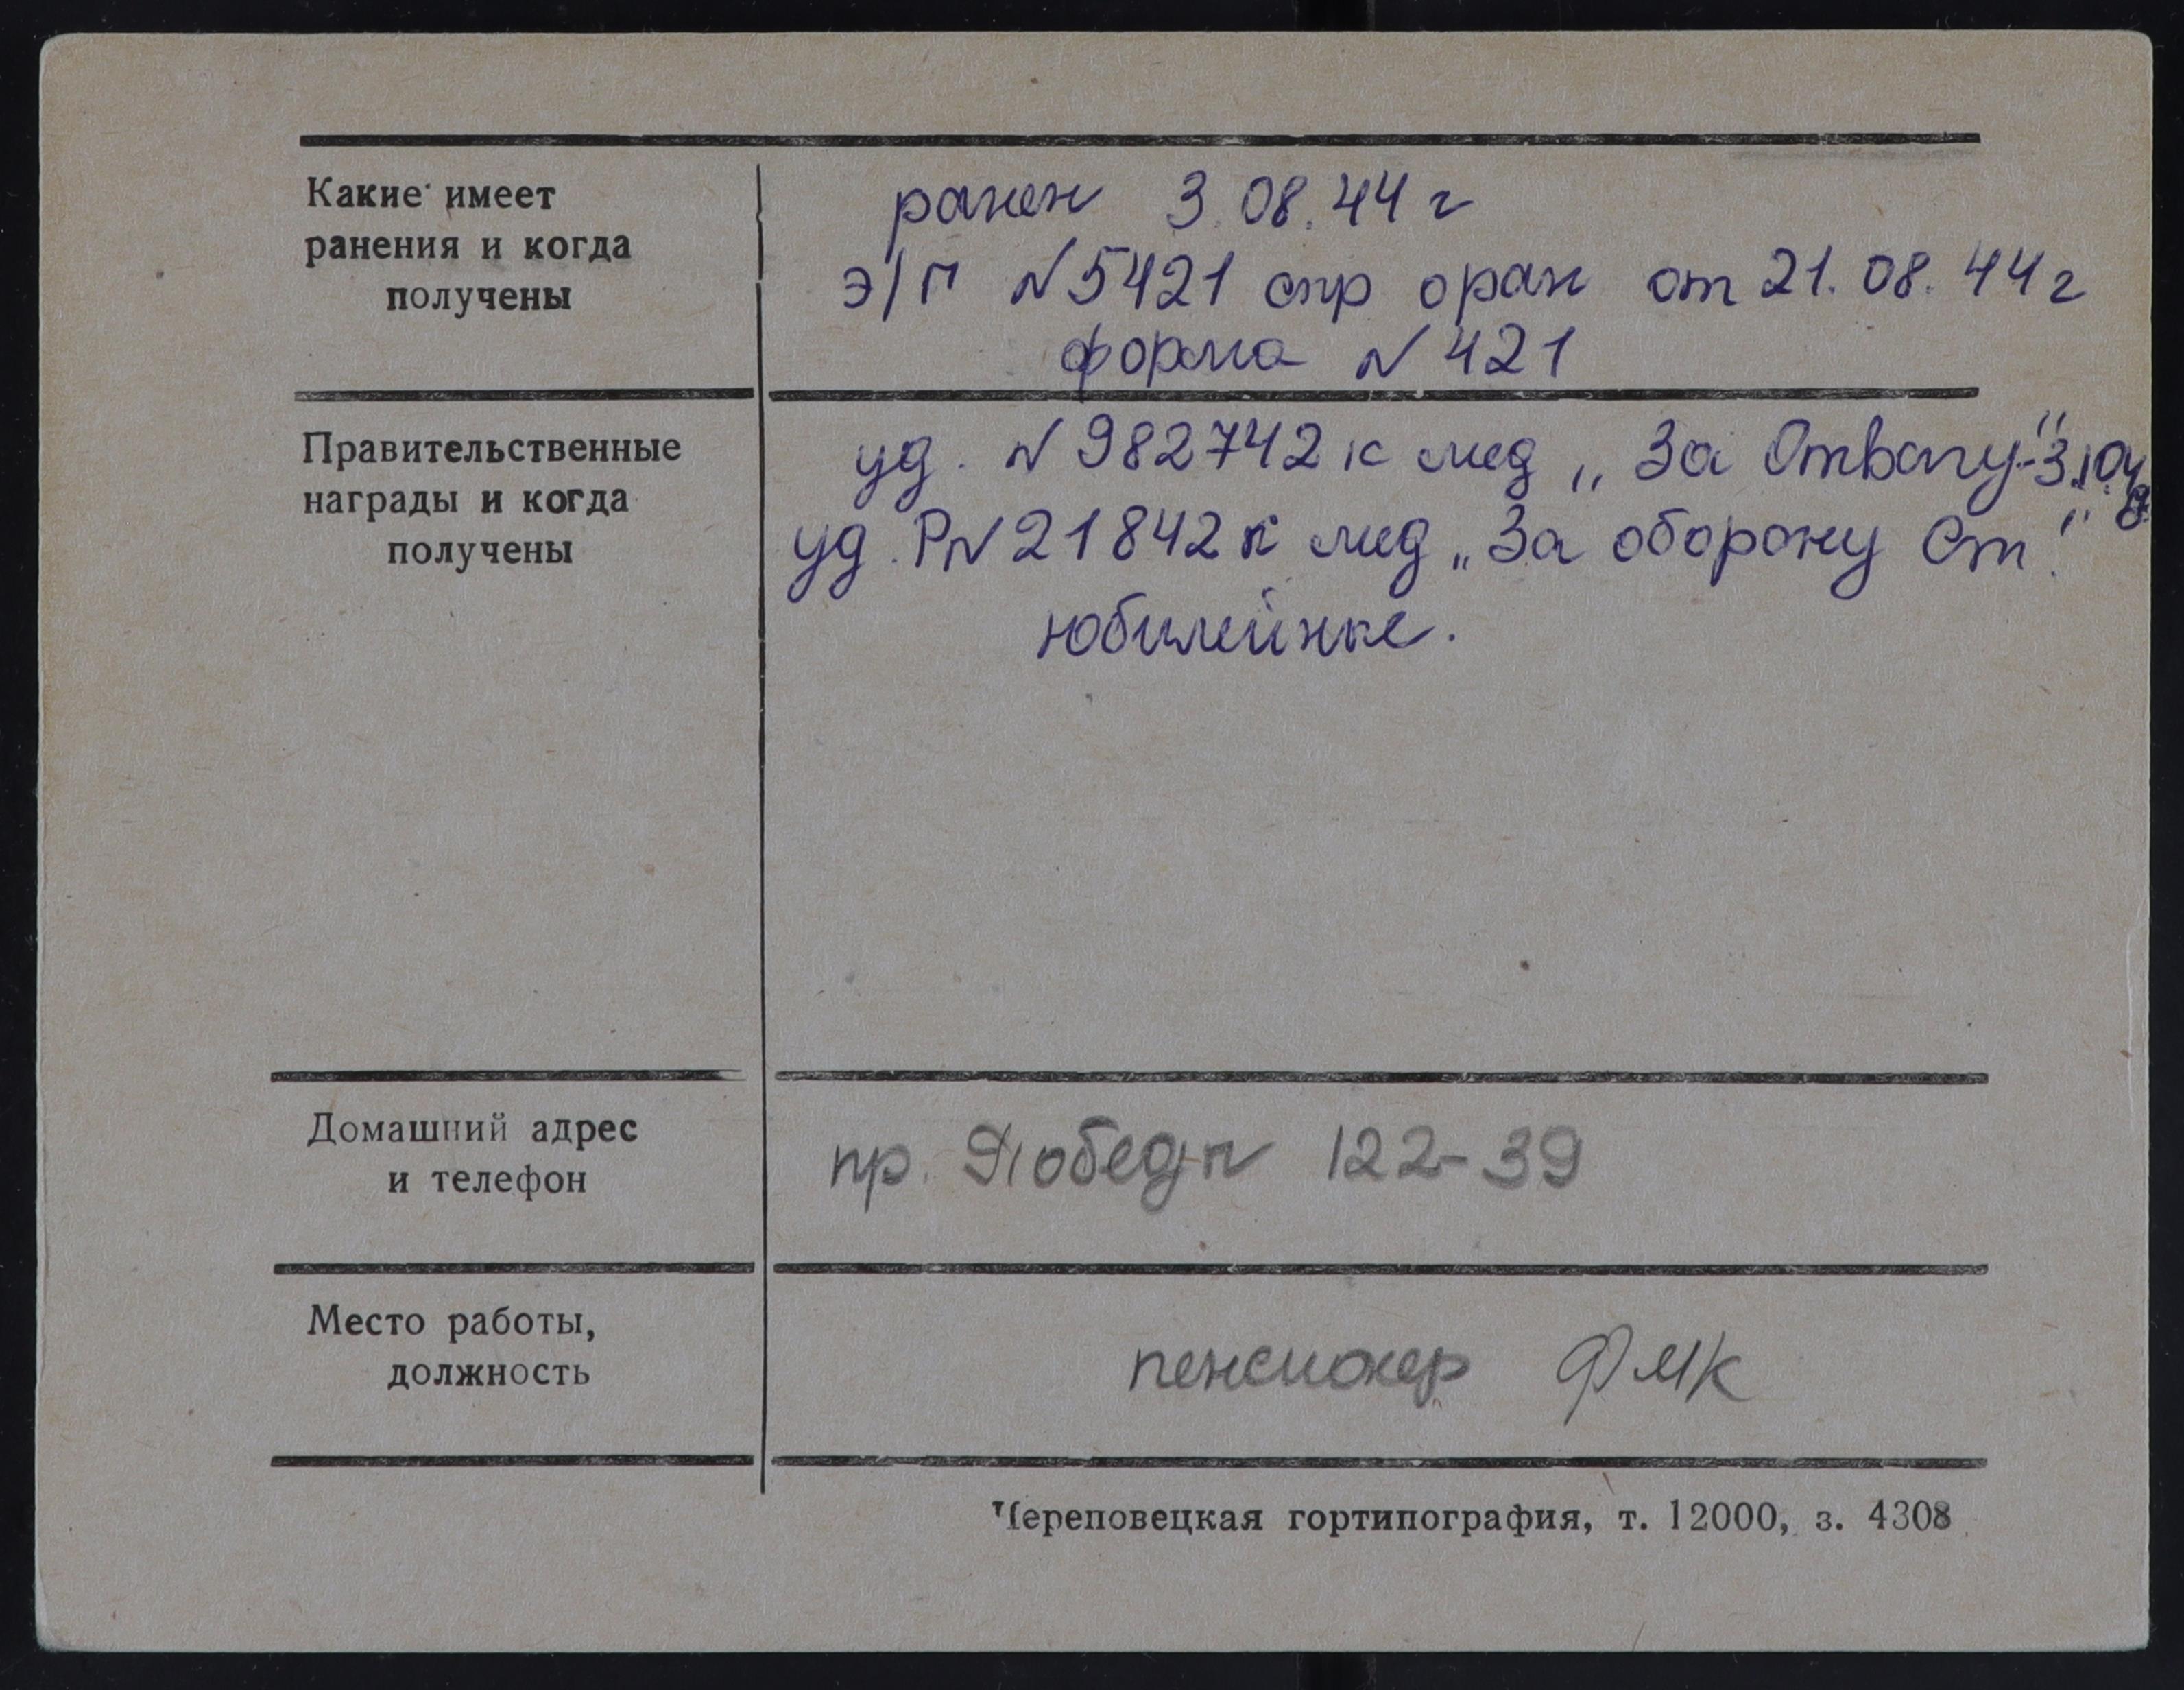 Какие имеет
ранения и когда
получены
ранен 3.08.44 г
э/г №5421 спр о ран от 21.08.44 г
форма №421
Правительственные
награды и когда
получены
уд. №982742 к мед „За Отвагу"-3.
уд. Р№21842 к мед „За оборону Ст."
юбилейные.
Домашний адрес
и телефон
пр. Победы 122-39
Место работы,
должность
пенсионер ФМК
Череповецкая гортипография, т. 12000, з. 4308